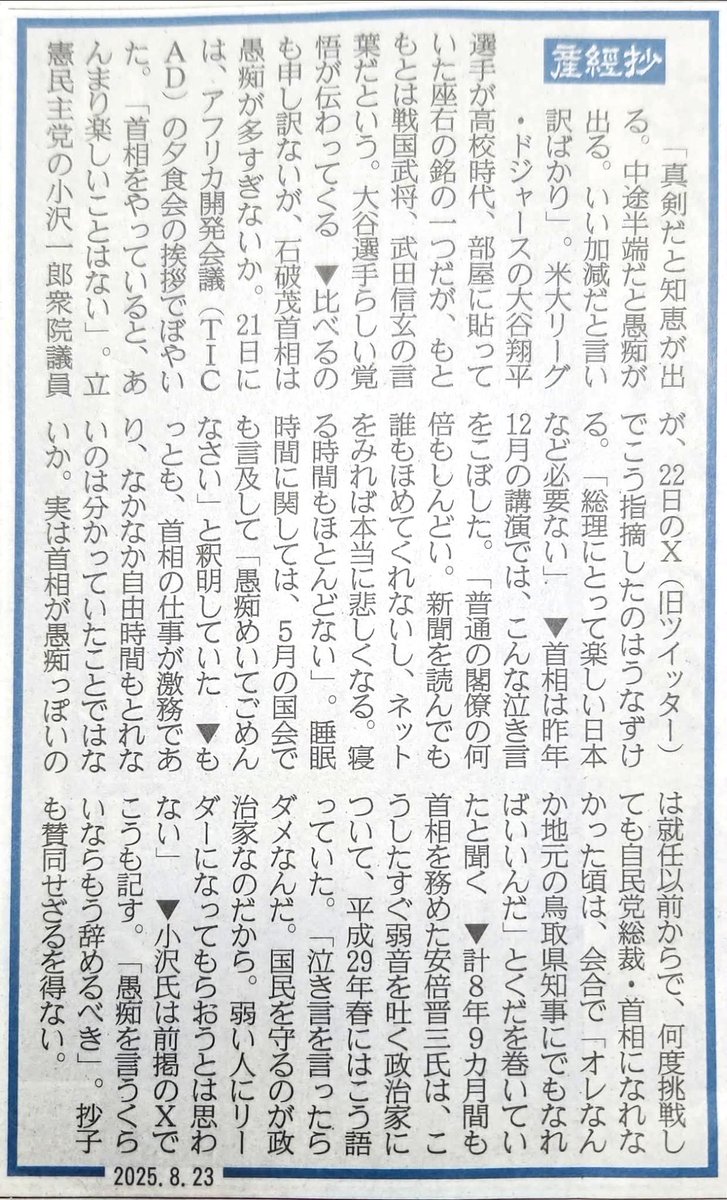 産經抄
「真剣だと知恵が出
る。中途半端だと愚痴が
出る。いい加減だと言い
訳ばかり」。米大リーグ
・ドジャースの大谷翔平
選手が高校時代、部屋に貼って
いた座右の銘の一つだが、もと
もとは戦国武将、武田信玄の言
葉だという。大谷選手らしい覚
悟が伝わってくる▼比べるの
も申し訳ないが、石破茂首相は
愚痴が多すぎないか。21日に
は、アフリカ開発会議（TIC
AD）の夕食会の挨拶でぼやい
た。「首相をやっていると、あ
んまり楽しいことはない」。立
憲民主党の小沢一郎衆院議員
が、22日のX（旧ツイッター）
でこう指摘したのはうなずけ
る。「総理にとって楽しい日本
など必要ない」▼首相は昨年
12月の講演では、こんな泣き言
をこぼした。「普通の閣僚の何
倍もしんどい。新聞を読んでも
誰もほめてくれないし、ネット
をみれば本当に悲しくなる。寝
る時間もほとんどない」。睡眠
時間に関しては、5月の国会で
も言及して「愚痴めいてごめん
なさい」と釈明していた▼も
っとも、首相の仕事が激務であ
り、なかなか自由時間もとれな
いのは分かっていたことではな
いか。実は首相が愚痴っぽいの
は就任以前からで、何度挑戦し
ても自民党総裁・首相になれな
かった頃は、会合で「オレなん
か地元の鳥取県知事にでもなれ
ばいいんだ」とくだを巻いてい
たと聞く▼計8年9カ月間も
首相を務めた安倍晋三氏は、こ
うしたすぐ弱音を吐く政治家に
ついて、平成29年春にはこう語
っていた。「泣き言を言ったら
ダメなんだ。国民を守るのが政
治家なのだから。弱い人にリー
ダーになってもらおうとは思わ
ない」▼小沢氏は前掲のXで
こうも記す。「愚痴を言うくら
いならもう辞めるべき」。抄子
も賛同せざるを得ない。
2025.8.23